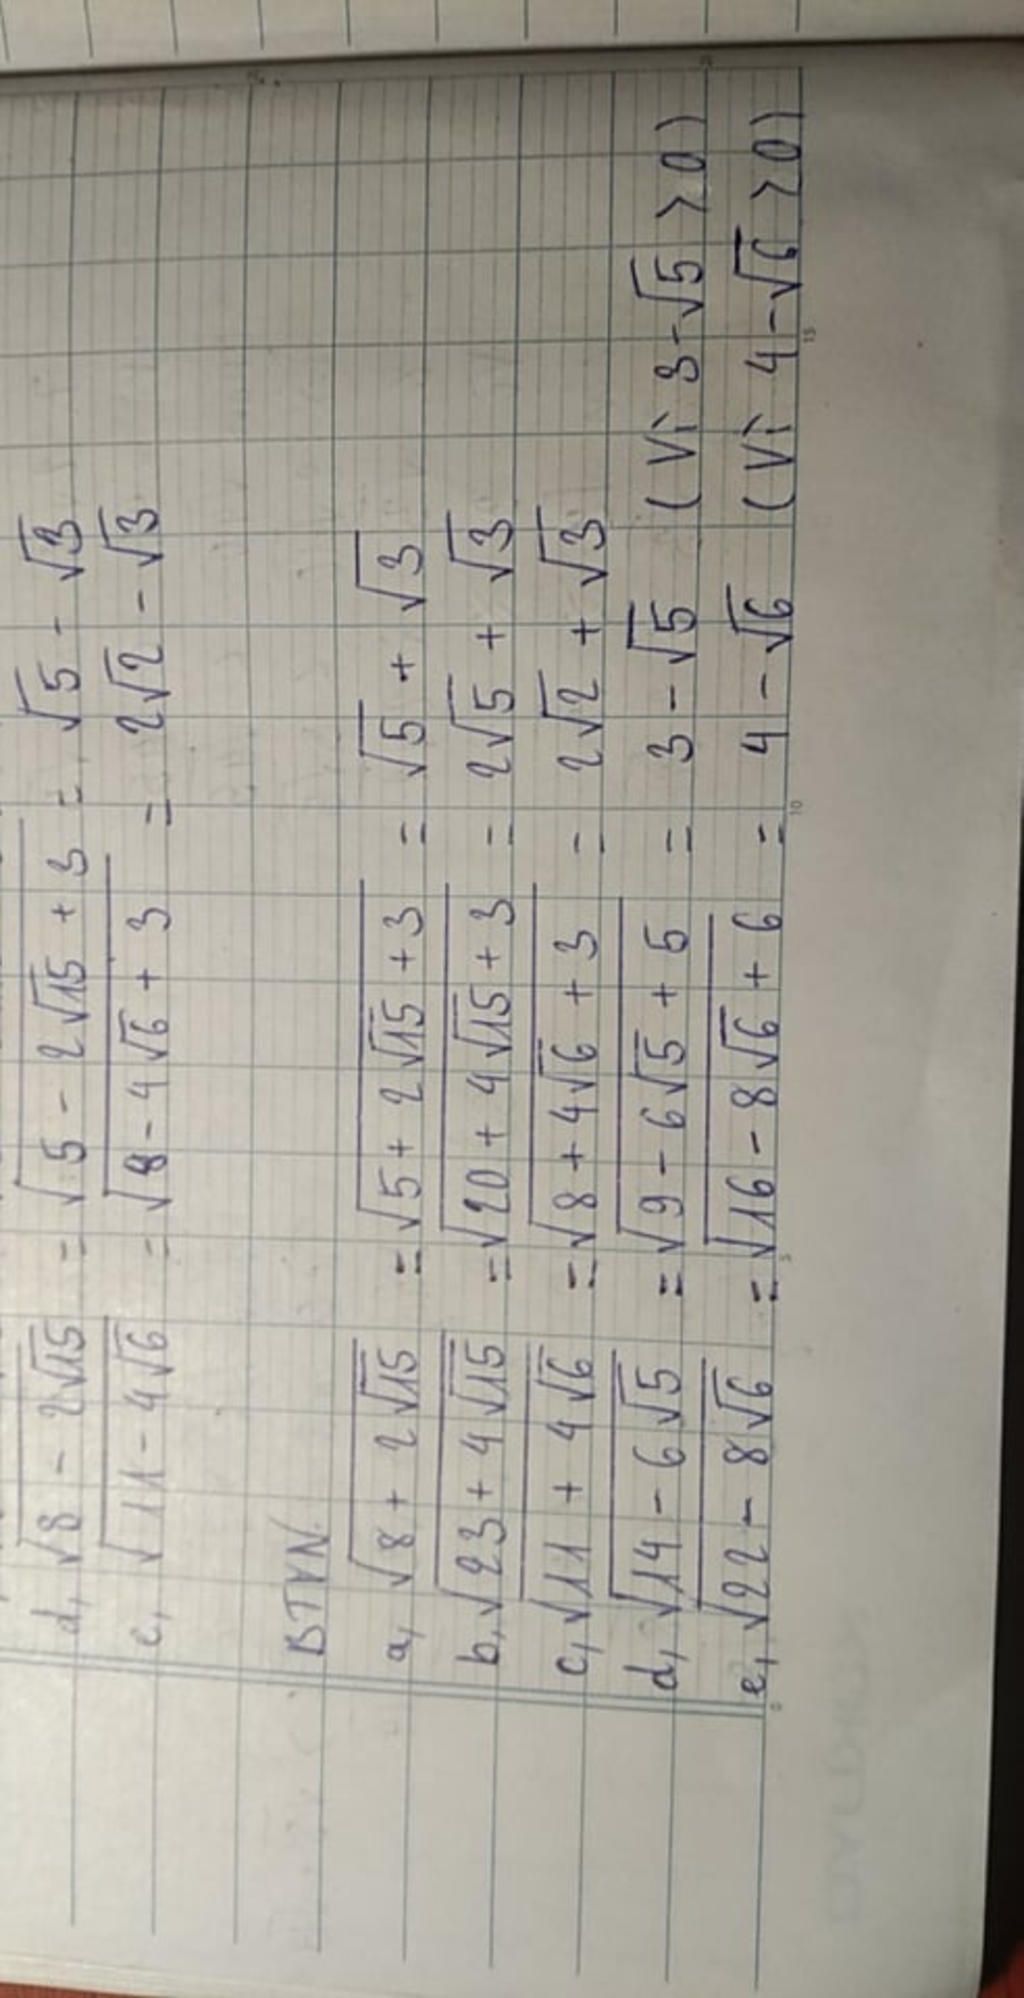 d, √(8 - 2√15) = √(5 - 2√15 + 3) = √5 - √3
e, √(11 - 4√6) = √(8 - 4√6 + 3) = 2√2 - √3
BTVN
a, √(8 + 2√15) = √(5 + 2√15 + 3) = √5 + √3
b, √(23 + 4√15) = √(20 + 4√15 + 3) = 2√5 + √3
c, √(11 + 4√6) = √(8 + 4√6 + 3) = 2√2 + √3
d, √(14 - 6√5) = √(9 - 6√5 + 5) = 3 - √5 (Vì 3 - √5 > 0)
e, √(22 - 8√6) = √(16 - 8√6 + 6) = 4 - √6 (Vì 4 - √6 > 0)